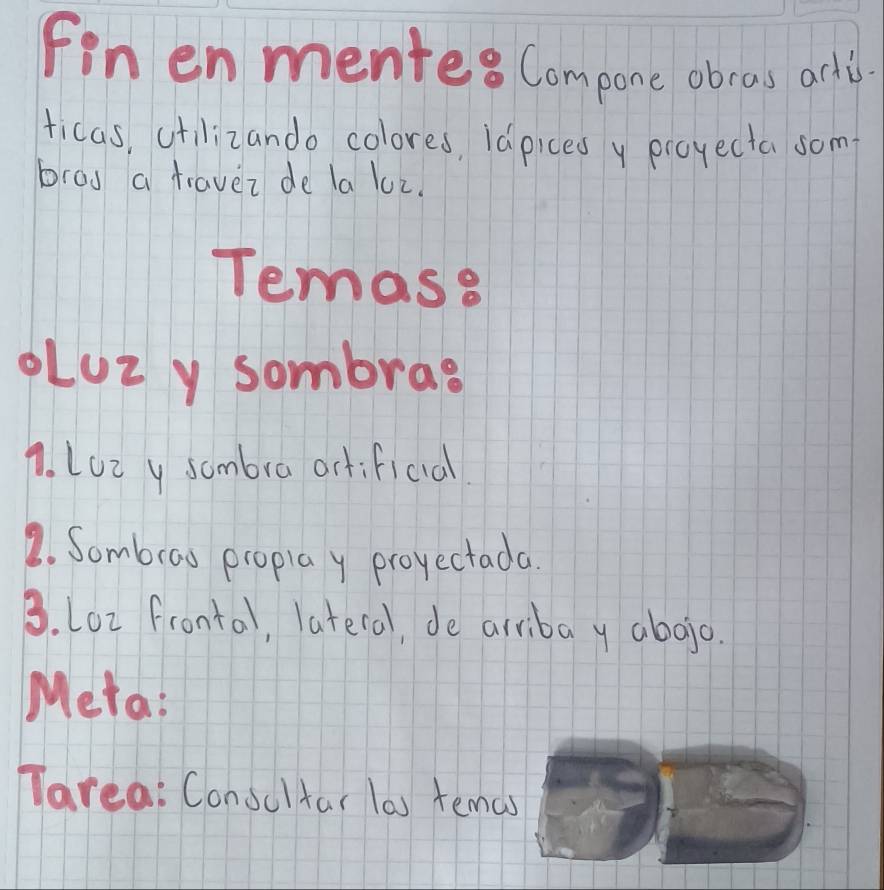 Fin en mente: Compone obras artís-
ticas, utilizando colores, lápices y proyecta som-
bras a travéz de la luz.
Temas:
•Luz y sombra:
1. Luz y sombra artificial.
2. Sombras propia y proyectada.
3. Luz frontal, lateral, de arriba y abajo.
Meta:
Tarea: Consultar los temas